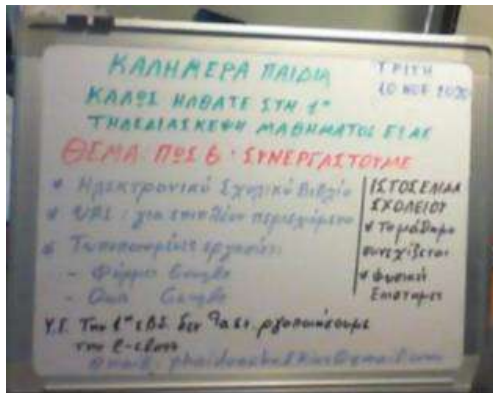 ΚΑΛΗΜΕΡΑ ΠΑΙΔΙΑ
ΤΡΙΤΗ
10 ΝΟΕ 2020
ΚΑΛΩΣ ΗΛΘΑΤΕ ΣΤΗ 1η
ΤΗΛΕΔΙΑΣΚΕΨΗ ΜΑΘΗΜΑΤΟΣ ΕΞΑΕ
ΘΕΜΑ: ΠΩΣ ΣΥΝΕΡΓΑΣΤΟΥΜΕ
* Ηλεκτρονικό Σχολικό Βιβλίο
* URL: για επιπλέον περιεχόμενο
* Τυποποιημένες εργασίες:
- Φόρμες Google
- Google
ΙΣΤΟΣΕΛΙΔΑ
ΣΧΟΛΕΙΟΥ
* Το μάθημα
συνεχίζεται
* Φυσικές
Επιστήμες
Υ.Γ. Την 1η εβδ. δεν
την e-class